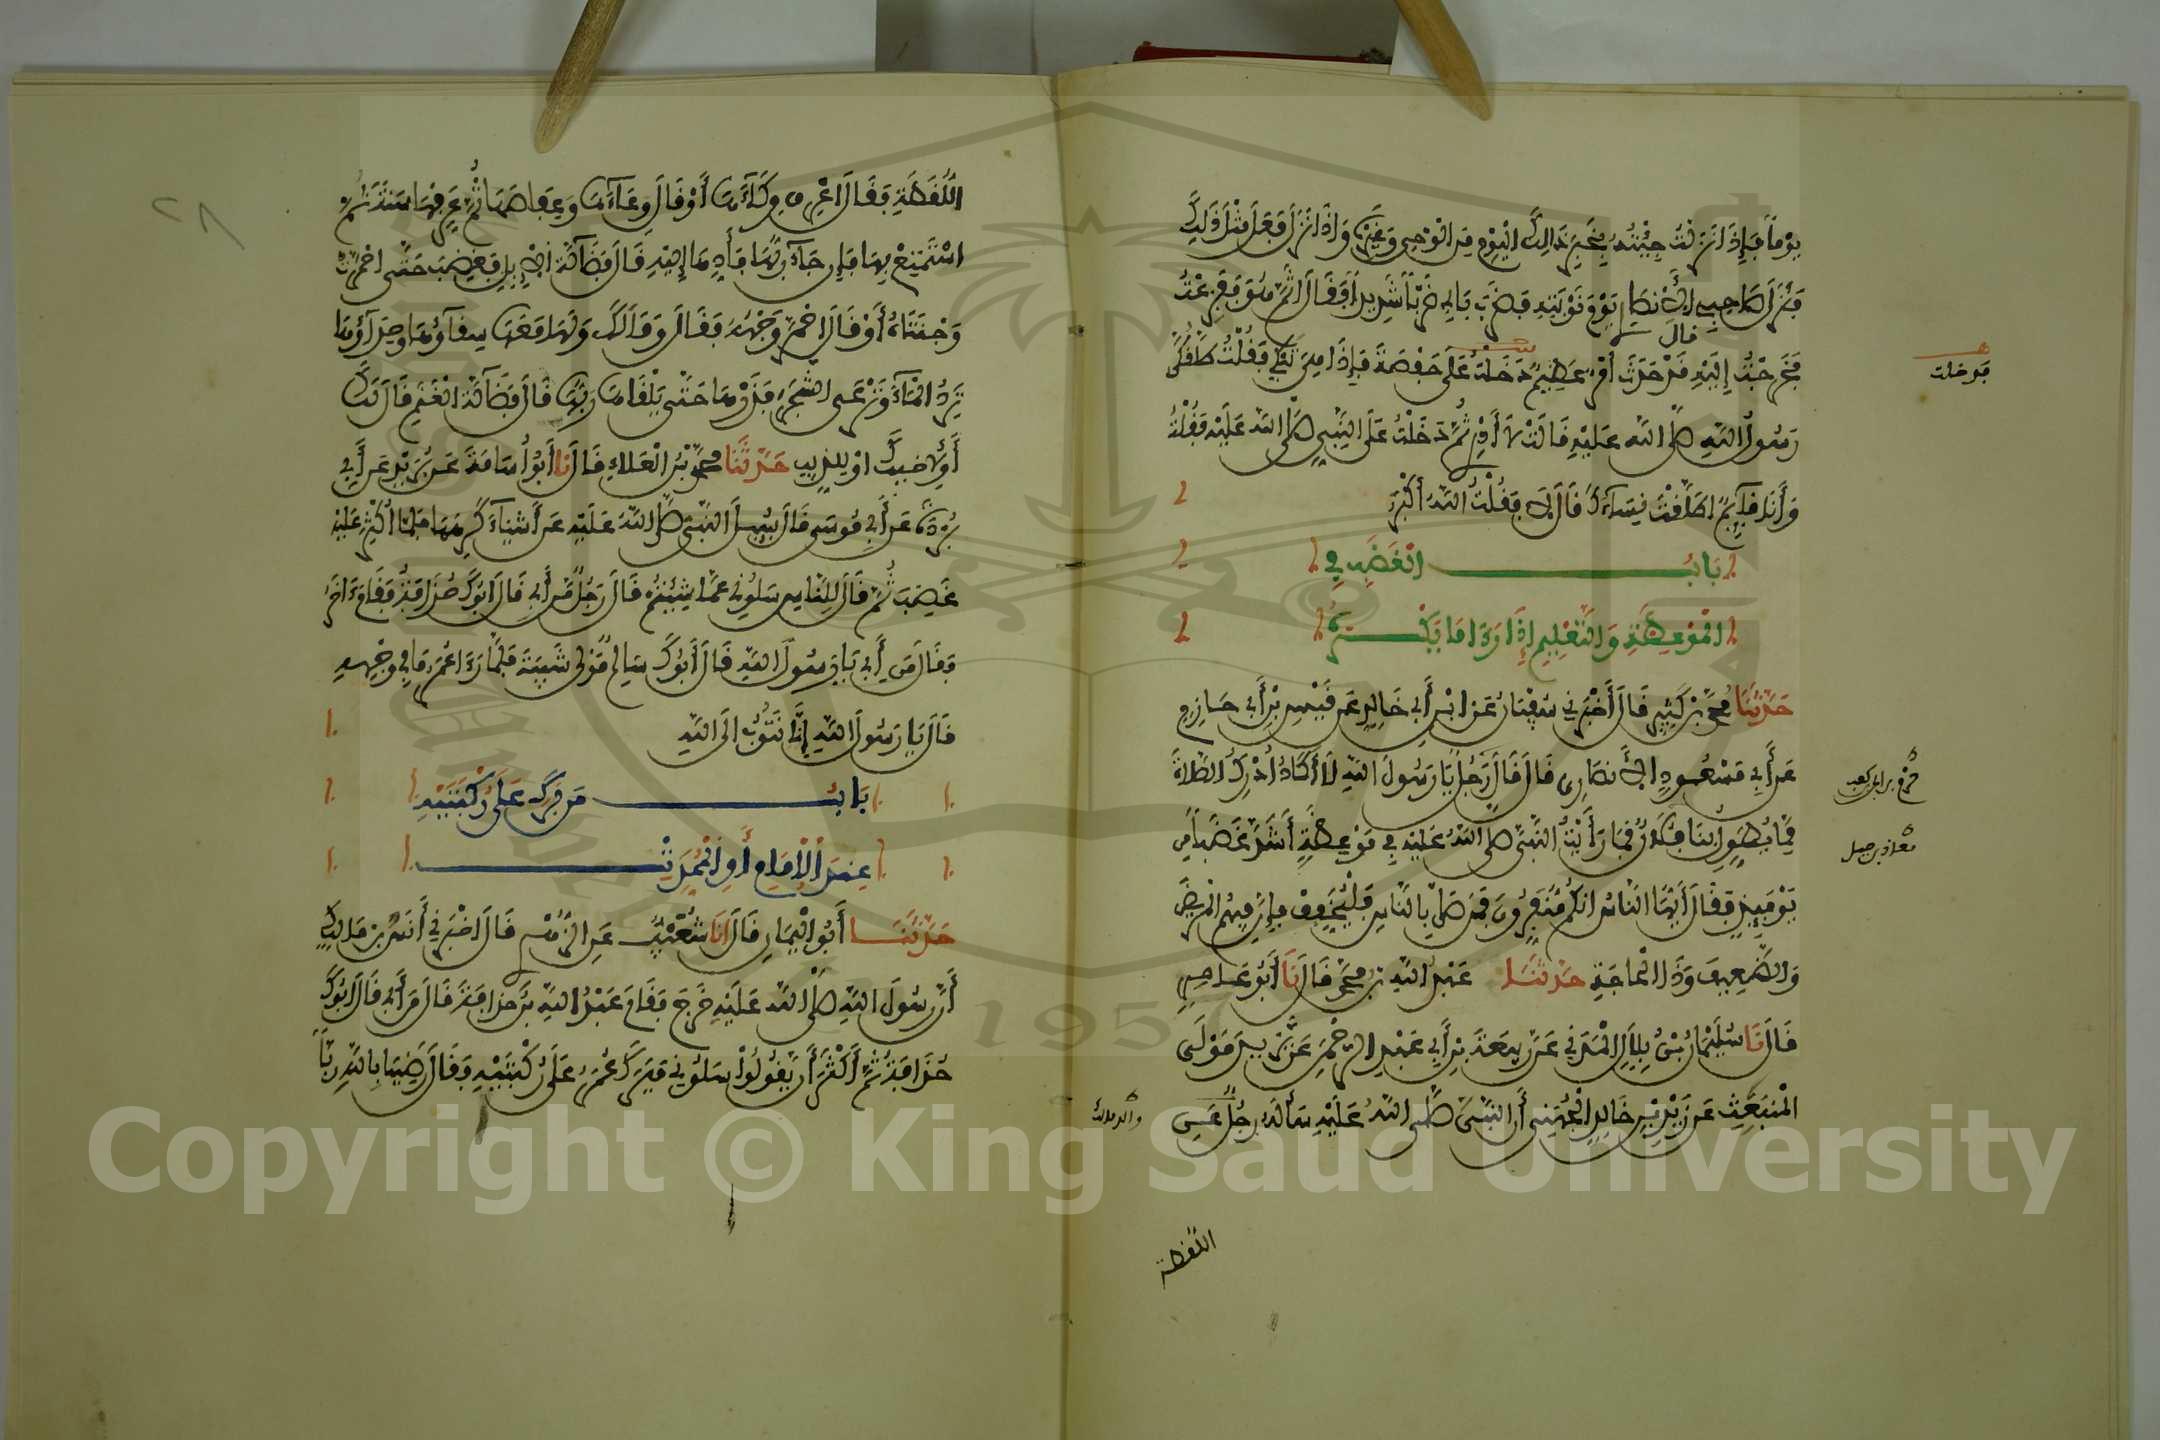 يَوْماً فَإِذَا نَزَلْتُ جِئْتُهُ بِخَبَرِ ذَالِكَ الْيَوْمِ مِنَ الْوَحْىِ وَغَيْرِهِ وَإِذَا نَزَلَ فَعَلَ مِثْلَ ذَلِكَ
فَنَزَلَ صَاحِبِى الْأَنْصَارِى يَوْمَ نَوْبَتِهِ فَضَرَبَ بَابِى ضَرْباً شَدِيداً فَقَالَ أَثَمَّ هُوَ فَفَزِعْتُ
قال
فَخَرَجْتُ إِلَيْهِ فَقَدْ حَدَثَ أَمْرٌ عَظِيمٌ دَخَلْتُ عَلَى حَفْصَةَ فَإِذَا هِىَ تَبْكِى فَقُلْتُ طَلَّقَكُنَّ
فدخلت
رَسُولُ اللَّهِ صَلَّى اللَّه عَلَيْهِ قَالَتْ لَا أَدْرِى ثُمَّ دَخَلْتُ عَلَى النَّبِىِّ صَلَّى اللَّه عَلَيْهِ فَقُلْتُ
وَأَنَا قَآئِمٌ اطَلَّقْتَ نِسَآءَكَ قَالَ لَا فَقُلْتُ اللَّهُ أَكْبَرُ
بَابُ الْغَضَبِ فِى
الْمَوْعِظَةِ وَالتَّعْلِيمِ إِذَا رَءَا مَا يَكْرَهُ
حَدَّثَنَا مُحَمَّدُ بْنُ كَثِيرٍ قَالَ أَخْبَرَنِى سُفْيَانُ عَنِ ابْنِ أَبِى خَالِدٍ عَن قَيْسِ بْنِ أَبِى حَازِمٍ
عَنْ أَبِى مَسْعُودٍ الْأَنصَارِى قَالَ قَالَ رَجُلٌ يَا رَسُولَ اللَّهِ لَا أَكَادُ أُدْرِكُ الصَّلَاةَ
حزم بن ابى كعب
مِمَّا يُطَوِّلُ بِنَا فُلَانٌ فَمَا رَأَيْتُ النَّبِىَّ صَلَّى اللَّهُ عَلَيْهِ فِى مَوْعِظَةٍ أَشَدَّ غَضَباً مِن
معاذ بن جبل
يَوْمَئِذٍ فَقَالَ أَيُّهَا النَّاسُ إِنَّكُمْ مُنَفِّرُونَ فَمَنْ صَلَّى بِالنَّاسِ فَلْيُخَفِّفْ فَإِنَّ فِيهِمُ الْمَرِيضَ
وَالضَّعِيفَ وَذَا الْحَاجَةِ حَدَّثَنَا عَبْدُ اللَّهِ بْنُ مُحَمَّدٍ قَالَ نَا أَبُو عَامِرٍ
قَالَ نَا سُلَيْمَانُ بْنُ بِلَالٍ الْمَدَنِى عَنْ رَبِيعَةَ بْنِ أَبِى عَبْدِ الرَّحْمَنِ عَنْ يَزِيدَ مَوْلَى
الْمُنْبَعِثِ عَنْ زَيْدِ بْنِ خَالِدٍ الْجُهَنِى أَنَّ النَّبِىَّ صَلَّى اللَّهُ عَلَيْهِ سَأَلَهُ رَجُلٌ عَنِ
اللقطة
اللُّقَطَةِ فَقَالَ اعْرِفْ وِكَآءَهَا أَوْ قَالَ وِعَآءَهَا وَعِفَاصَهَا ثُمَّ عَرِّفْهَا سَنَةً ثُمَّ
اسْتَمْتِعْ بِهَا فَإِن جَآءَ رَبُّهَا فَأَدِّهَا إِلَيْهِ قَالَ فَضَآلَّةُ الْإِبِلِ فَغَضِبَ حَتَّى احْمَرَّتْ
وَجْنَتَاهُ أَوْ قَالَ احْمَرَّ وَجْهُهُ فَقَالَ وَمَالَكَ وَلَهَا مَعَهَا سِقَآؤُهَا وَحِذَآؤُهَا
تَرِدُ الْمَآءَ وَتَرْعَى الشَّجَرَ فَذَرْهَا حَتَّى يَلْقَاهَا رَبُّهَا قَالَ فَضَآلَّةُ الْغَنَمِ قَالَ لَكَ
أَوْ لِأَخِيكَ اوْ لِلذِّيبِ حَدَّثَنَا مُحَمَّدُ بْنُ الْعَلَاءِ قَالَ نَا أَبُو أُسَامَةَ عَنْ بُرَيْدٍ عَن أَبِى
بُرْدَةَ عَنْ أَبِى مُوسَى قَالَ سُئِلَ النَّبِىُّ صَلَّى اللَّهُ عَلَيْهِ عَنْ أَشْيَآءَ كَرِهَهَا فَلَمَّا أُكْثِرَ عَلَيْهِ
غَضِبَ ثُمَّ قَالَ لِلنَّاسِ سَلُونِى عَمَّا شِئْتُمْ قَالَ رَجُلٌ مَنْ أَبِى قَالَ أَبُوكَ حُذَافَةُ فَقَامَ ءَاخَرُ
فَقَالَ مَنْ أَبِى يَا رَسُولَ اللَّهِ قَالَ أَبُوكَ سَالِمٌ مَوْلَى شَيْبَةَ فَلَمَّا رَءَا عُمَرُ مَا فِى وَجْهِهِ
قَالَ يَا رَسُولَ اللَّهِ إِنَّا نَتُوبُ الَى اللَّهِ
بَابُ مَنْ بَرَكَ عَلَى رُكْبَتَيْهِ
عِنْدَ الْإِمَامِ أَوِ الْمُحَدِّثِ
حَدَّثَنَا أَبُو الْيَمَانِ قَالَ انَا شُعَيْبٌ عَنِ الزُّهْرِى قَالَ اخْبَرَنِى أَنَسُ بْنُ مَالِكٍ
أَنَّ رَسُولَ اللَّهِ صَلَّى اللَّه عَلَيْهِ خَرَجَ فَقَامَ عَبْدُ اللَّهِ بْنُ حُذَافَةَ قَالَ مَنْ أَبِى قَالَ أَبُوكَ
حُذَافَةُ ثُمَّ أَكْثَرَ أَنْ يَقُولُوا سَلُونِى فَبَرَكَ عُمَرُ عَلَى رُكْبَتَيْهِ فَقَالَ رَضِينَا بِاللَّهِ رَبّاً
1957
Copyright © King Saud University